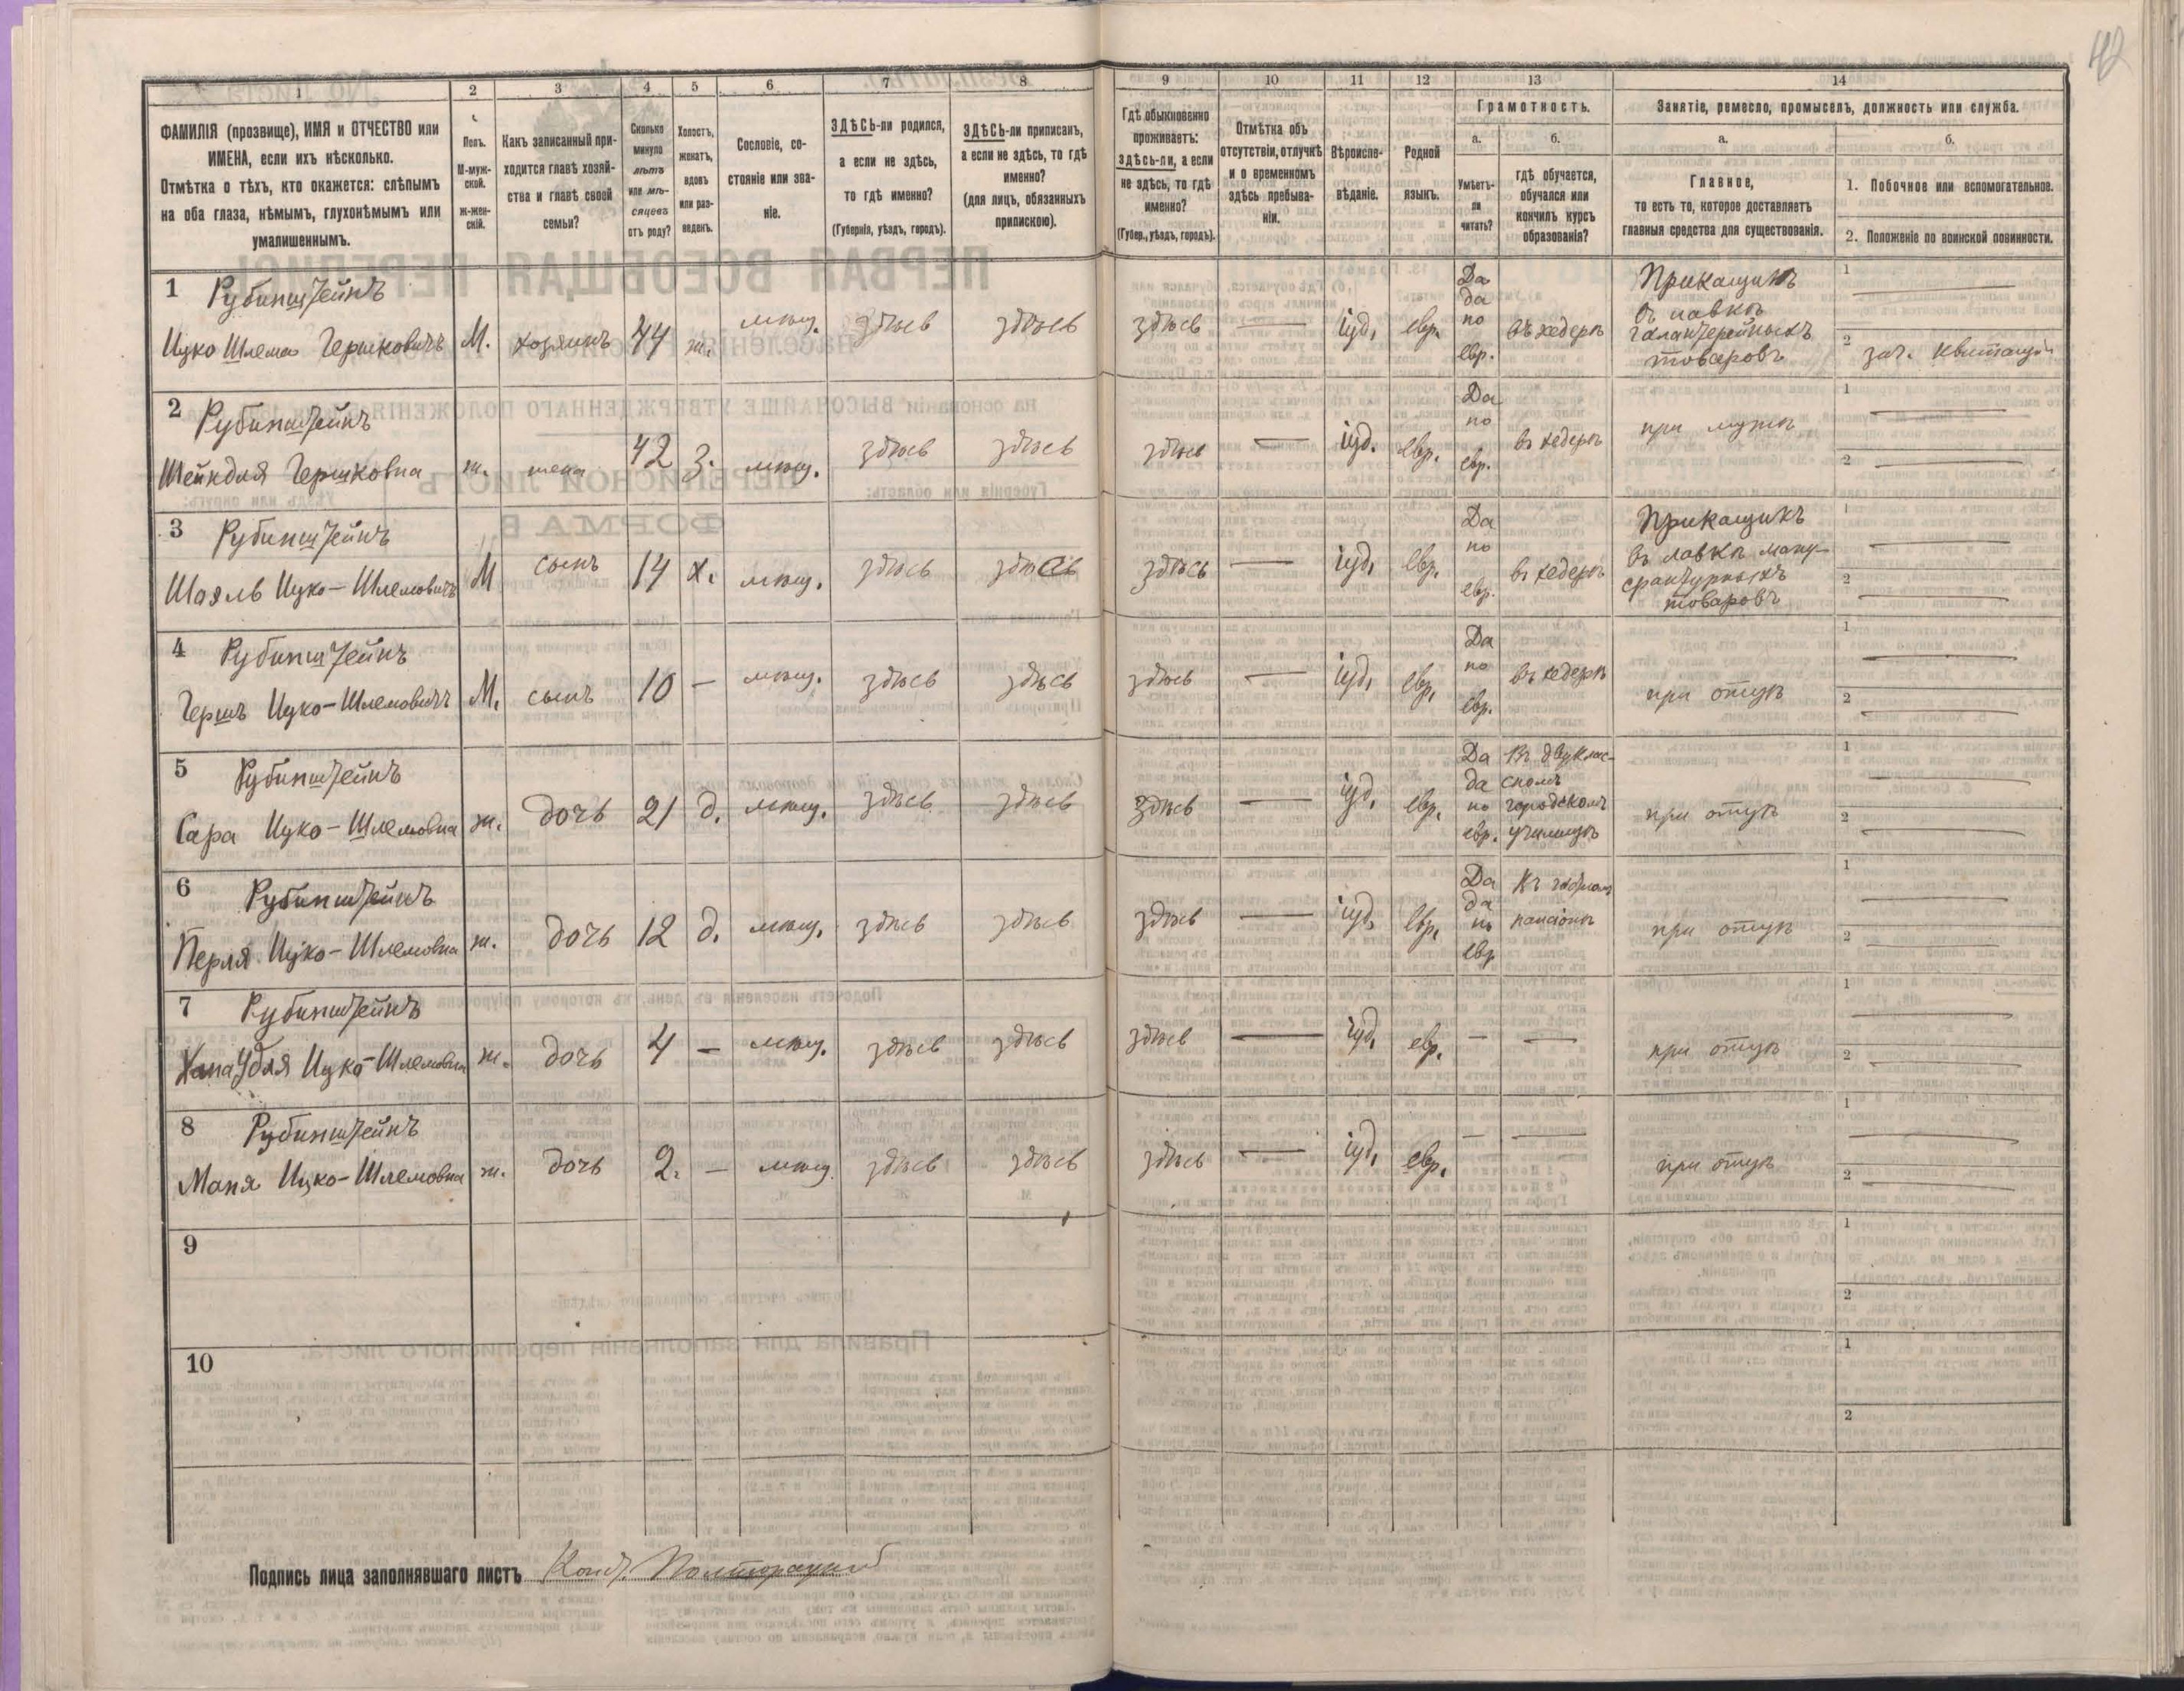 42
1 2 3 4 5 6 7 8 9 10 11 12 13 14
ФАМИЛІЯ (прозвище), ИМЯ и ОТЧЕСТВО или
ИМЕНА, если ихъ нѣсколько.
Отмѣтка о тѣхъ, кто окажется: слѣпымъ
на оба глаза, нѣмымъ, глухонѣмымъ или
умалишеннымъ.
Полъ.
М-муж-
ской.
Ж-жен-
скій.
Какъ записанный при-
ходится главѣ хозяй-
ства и главѣ своей
семьи?
Сколько
минуло
лѣтъ
или мѣ-
сяцевъ
отъ роду?
Холостъ,
женатъ,
вдовъ
или раз-
веденъ.
Сословіе, со-
стояніе или зва-
ніе.
ЗДѢСЬ-ли родился,
а если не здѣсь,
то гдѣ именно?
(Губернія, уѣздъ, городъ).
ЗДѢСЬ-ли приписанъ,
а если не здѣсь, то гдѣ
именно?
(для лицъ, обязанныхъ
припискою).
Гдѣ обыкновенно
проживаетъ:
здѣсь-ли, а если
не здѣсь, то гдѣ
именно?
(Губер., уѣздъ, городъ).
Отмѣтка объ
отсутствіи, отлучкѣ
и о временномъ
здѣсь пребыва-
ніи.
Вѣроиспо-
вѣданіе.
Родной
языкъ.
Грамотность.
а.
Умѣетъ-
ли
читать?
б.
гдѣ обучается,
обучался или
кончилъ курсъ
образованія?
Занятіе, ремесло, промыселъ, должность или служба.
а.
Главное,
то есть то, которое доставляетъ
главныя средства для существованія.
б.
1. Побочное или вспомогательное.
2. Положеніе по воинской повинности.
1 Рубинштейнъ
Ицко Шлема Гершковичъ М. хозяинъ 44 ж. мѣщ. здѣсь здѣсь здѣсь — іуд. евр.
Да
да
по
евр.
въ хедерѣ
Прикащикъ
въ лавкѣ
галантерейныхъ
товаровъ
1 —
2 зач. квитанц.
2 Рубинштейнъ
Шейндля Гершковна ж. жена 42 з. мѣщ. здѣсь здѣсь здѣсь — іуд. евр.
Да
по
евр.
въ хедерѣ
при мужѣ
1 —
2 —
3 Рубинштейнъ
Шаяль Ицко-Шлемовичъ М сынъ 14 х. мѣщ. здѣсь здѣсь здѣсь — іуд. евр.
Да
по
евр.
въ хедерѣ
Прикащикъ
въ лавкѣ ману-
фрактурныхъ
товаровъ
1 —
2 —
4 Рубинштейнъ
Гершъ Ицко-Шлемовичъ М. сынъ 10 — мѣщ. здѣсь здѣсь здѣсь — іуд. евр.
Да
по
евр.
въ хедерѣ
при отцѣ
1 —
2 —
5 Рубинштейнъ
Сара Ицко-Шлемовна ж. дочь 21 д. мѣщ. здѣсь здѣсь здѣсь — іуд. евр.
Да
да
по
евр.
Въ двуклас-
сномъ
городскомъ
училищѣ
при отцѣ
1 —
2 —
6 Рубинштейнъ
Перля Ицко-Шлемовна ж. дочь 12 д. мѣщ. здѣсь здѣсь здѣсь — іуд. евр.
Да
да
по
евр
Въ частном
пансіонѣ
при отцѣ
1 —
2 —
7 Рубинштейнъ
Хана Удля Ицко-Шлемовна ж. дочь 4 — мѣщ. здѣсь здѣсь здѣсь — іуд. евр. — —
при отцѣ
1 —
2 —
8 Рубинштейнъ
Маня Ицко-Шлемовна ж. дочь 2. — мѣщ. здѣсь здѣсь здѣсь — іуд. евр. — —
при отцѣ
1 —
2 —
9
1
2
10
1
2
Подпись лица заполнявшаго листъ Полторацкій